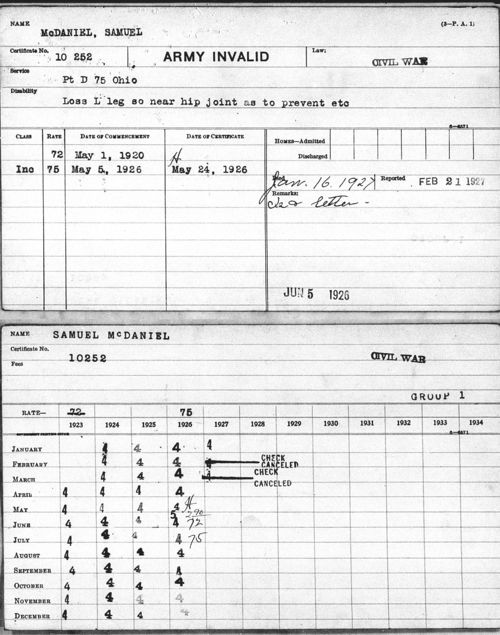 NAME (3-P. A. 1)
McDANIEL, SAMUEL
Certificate No. 10 252 ARMY INVALID Law: CIVIL WAR
Service
Pt D 75 Ohio
Disability
Loss L leg so near hip joint as to prevent etc
6-4271
CLASS RATE DATE OF COMMENCEMENT DATE OF CERTIFICATE HOMES—Admitted
72 May 1, 1920 Discharged
Inc 75 May 5, 1926 May 24, 1926
Died Jan. 16. 1927 Reported FEB 21 1927
Remarks:
letter -
JUN 5 1926
NAME SAMUEL McDANIEL
Certificate No.
10252 CIVIL WAR
Fees
GROUP 1
RATE— 72 75
1923 1924 1925 1926 1927 1928 1929 1930 1931 1932 1933 1934
6-4271
JANUARY 4 4 4 4
FEBRUARY 4 4 4 4 CHECK CANCELED
MARCH 4 4 4 4 CHECK CANCELED
APRIL 4 4 4 4
MAY 4 4 4 4
JUNE 4 4 4 5 4 72
JULY 4 4 4 4 75
AUGUST 4 4 4 4
SEPTEMBER 4 4 4 4
OCTOBER 4 4 4 4
NOVEMBER 4 4 4 4
DECEMBER 4 4 4 4